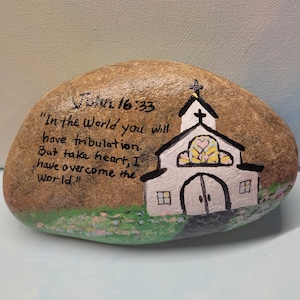 John 16:33
"In the World you will
have tribulation.
But take heart, I
have overcome the
World"